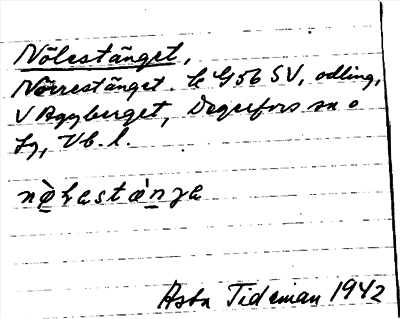 Nölestänget,
Norrestänget. k G56 SV, odling,
V Aggberget, Degerfors sn o
fg, Vb. l.
Asta Tideman 1942